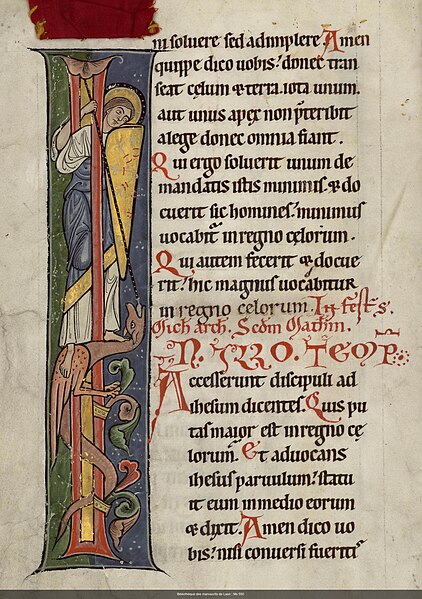 ni soluere sed adimplere. Amen
quippe dico uobis. donec tran
seat cęlum & terra. iota unum.
aut unus apex non p̄teribit
a lege donec omnia fiant.
Qui ergo soluerit unum de
mandatis istis minimis. & do
cuerit sic homines. minimus
uocabit̄ in regno cęlorum.
Qui autem fecerit & docue
rit. hic magnus uocabitur
in regno celorum. In fest̄ s.
Mich arch. Scdm Mathm.
IN. ILLO. TEMP.
Accesserunt discipuli ad
ihesum dicentes. Quis pu
tas maior est in regno cę
lorum. Et aduocans
ihesus paruulum. statu
it eum in medio eorum
& dixit. Amen dico uo
bis. nisi conuersi fueritis
Bibliothèque des manuscrits de Laon : Ms 550